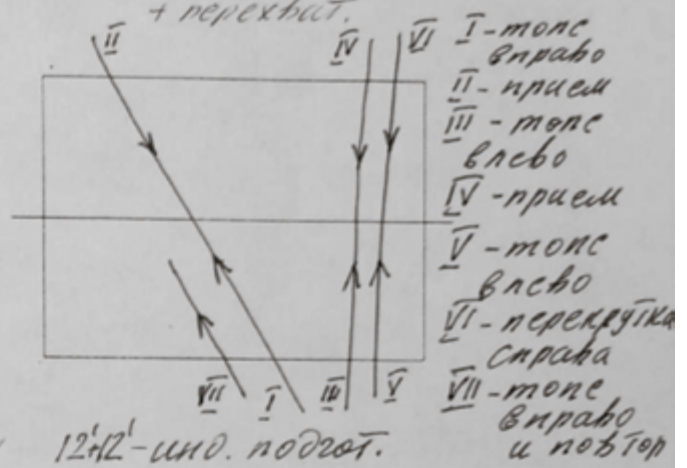 + перехват.
II
IV
VI
I - топс
вправо
II - прием
III - топс
влево
IV - прием
V - топс
влево
VI - перекрутка
справа
VII - топс
вправо
и повтор
VII
I
III
V
12'+12' - инд. подгот.